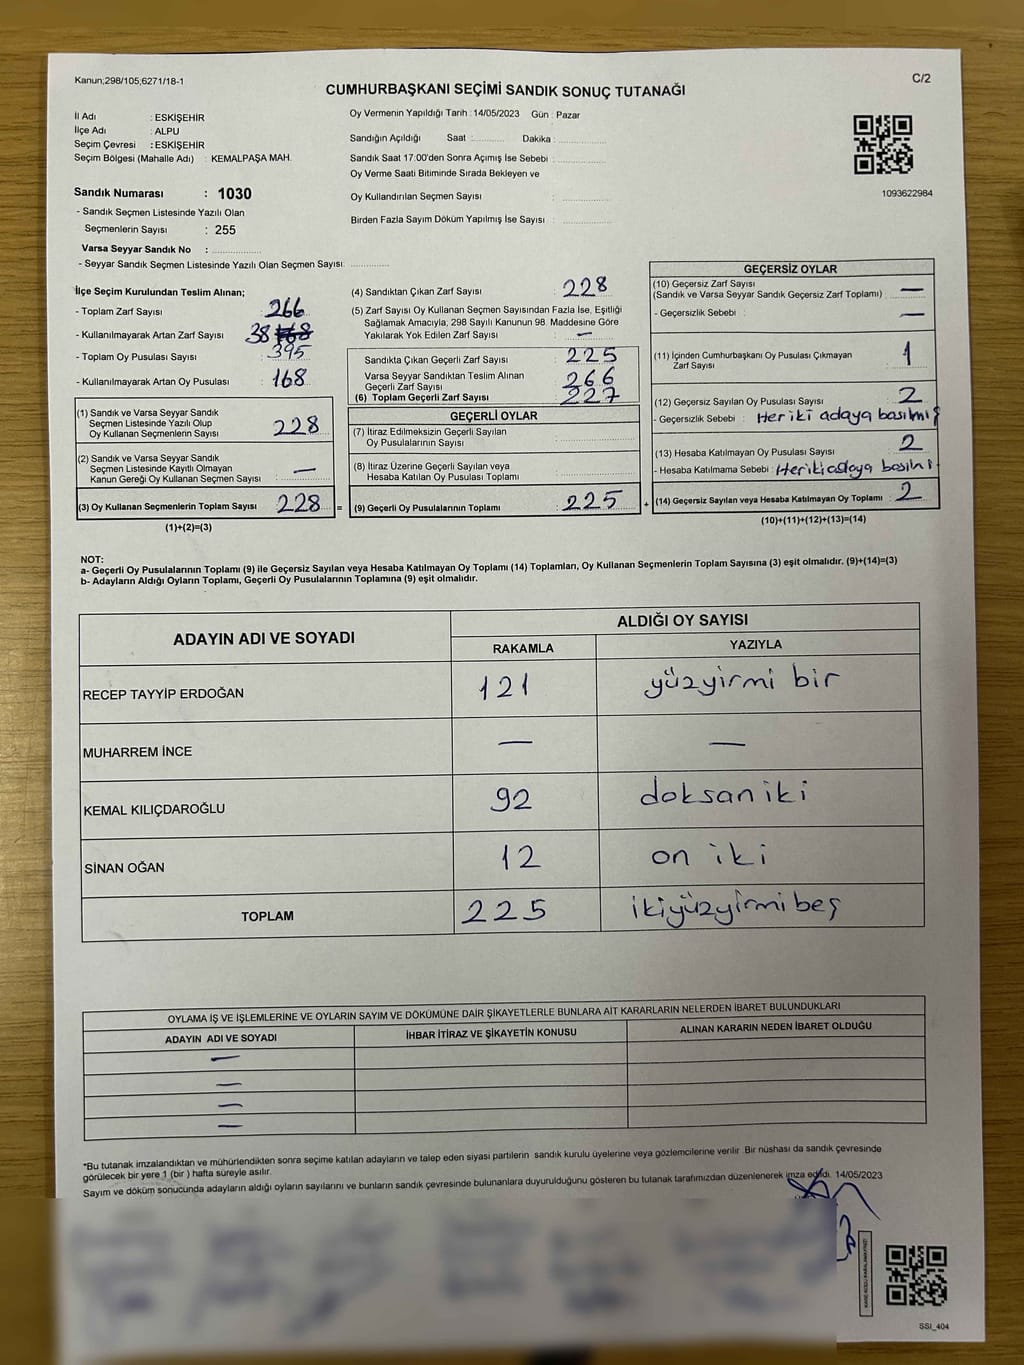 Kanun;298/105,6271/18-1
C/2
CUMHURBAŞKANI SEÇİMİ SANDIK SONUÇ TUTANAĞI
İl Adı : ESKİŞEHİR
İlçe Adı : ALPU
Seçim Çevresi : ESKİŞEHİR
Seçim Bölgesi (Mahalle Adı) : KEMALPAŞA MAH.
Sandık Numarası : 1030
- Sandık Seçmen Listesinde Yazılı Olan
Seçmenlerin Sayısı : 255
Varsa Seyyar Sandık No :
- Seyyar Sandık Seçmen Listesinde Yazılı Olan Seçmen Sayısı:
Oy Vermenin Yapıldığı Tarih : 14/05/2023 Gün : Pazar
Sandığın Açıldığı Saat : Dakika :
Sandık Saat 17:00'den Sonra Açımış İse Sebebi :
Oy Verme Saati Bitiminde Sırada Bekleyen ve
Oy Kullandırılan Seçmen Sayısı :
Birden Fazla Sayım Döküm Yapılmış İse Sayısı :
1093622984
İlçe Seçim Kurulundan Teslim Alınan;
- Toplam Zarf Sayısı : 266
- Kullanılmayarak Artan Zarf Sayısı : 38
- Toplam Oy Pusulası Sayısı : 395
- Kullanılmayarak Artan Oy Pusulası : 168
(1) Sandık ve Varsa Seyyar Sandık
Seçmen Listesinde Yazılı Olup
Oy Kullanan Seçmenlerin Sayısı : 228
(2) Sandık ve Varsa Seyyar Sandık
Seçmen Listesinde Kayıtlı Olmayan
Kanun Gereği Oy Kullanan Seçmen Sayısı : —
(3) Oy Kullanan Seçmenlerin Toplam Sayısı : 228 =
(1)+(2)=(3)
(4) Sandıktan Çıkan Zarf Sayısı : 228
(5) Zarf Sayısı Oy Kullanan Seçmen Sayısından Fazla İse, Eşitliği
Sağlamak Amacıyla, 298 Sayılı Kanunun 98. Maddesine Göre
Yakılarak Yok Edilen Zarf Sayısı : —
Sandıkta Çıkan Geçerli Zarf Sayısı : 225
Varsa Seyyar Sandıktan Teslim Alınan
Geçerli Zarf Sayısı : 266
(6) Toplam Geçerli Zarf Sayısı : 227
GEÇERLİ OYLAR
(7) İtiraz Edilmeksizin Geçerli Sayılan
Oy Pusulalarının Sayısı :
(8) İtiraz Üzerine Geçerli Sayılan veya
Hesaba Katılan Oy Pusulası Toplamı :
(9) Geçerli Oy Pusulalarının Toplamı : 225 +
GEÇERSİZ OYLAR
(10) Geçersiz Zarf Sayısı
(Sandık ve Varsa Seyyar Sandık Geçersiz Zarf Toplamı) : —
- Geçersizlik Sebebi : —
(11) İçinden Cumhurbaşkanı Oy Pusulası Çıkmayan
Zarf Sayısı : 1
(12) Geçersiz Sayılan Oy Pusulası Sayısı : 2
- Geçersizlik Sebebi : Her iki adaya basılmış
(13) Hesaba Katılmayan Oy Pusulası Sayısı : 2
- Hesaba Katılmama Sebebi : Her iki adaya
(14) Geçersiz Sayılan veya Hesaba Katılmayan Oy Toplamı : 2
(10)+(11)+(12)+(13)=(14)
NOT:
a- Geçerli Oy Pusulalarının Toplamı (9) ile Geçersiz Sayılan veya Hesaba Katılmayan Oy Toplamı (14) Toplamları, Oy Kullanan Seçmenlerin Toplam Sayısına (3) eşit olmalıdır. (9)+(14)=(3)
b- Adayların Aldığı Oyların Toplamı, Geçerli Oy Pusulalarının Toplamına (9) eşit olmalıdır.
ADAYIN ADI VE SOYADI
ALDIĞI OY SAYISI
RAKAMLA YAZIYLA
RECEP TAYYİP ERDOĞAN 121 yüzyirmi bir
MUHARREM İNCE — —
KEMAL KILIÇDAROĞLU 92 doksan iki
SİNAN OĞAN 12 on iki
TOPLAM 225 ikiyüzyirmibeş
OYLAMA İŞ VE İŞLEMLERİNE VE OYLARIN SAYIM VE DÖKÜMÜNE DAİR ŞİKAYETLERLE BUNLARA AİT KARARLARIN NELERDEN İBARET BULUNDUKLARI
ADAYIN ADI VE SOYADI İHBAR İTİRAZ VE ŞİKAYETİN KONUSU ALINAN KARARIN NEDEN İBARET OLDUĞU
—
—
—
—
*Bu tutanak imzalandıktan ve mühürlendikten sonra seçime katılan adayların ve talep eden siyasi partilerin sandık kurulu üyelerine veya gözlemcilerine verilir. Bir nüshası da sandık çevresinde
görülecek bir yere 1 (bir ) hafta süreyle asılır.
Sayım ve döküm sonucunda adayların aldığı oyların sayılarını ve bunların sandık çevresinde bulunanlara duyurulduğunu gösteren bu tutanak tarafımızdan düzenlenerek imza edildi. 14/05/2023
SSI_404